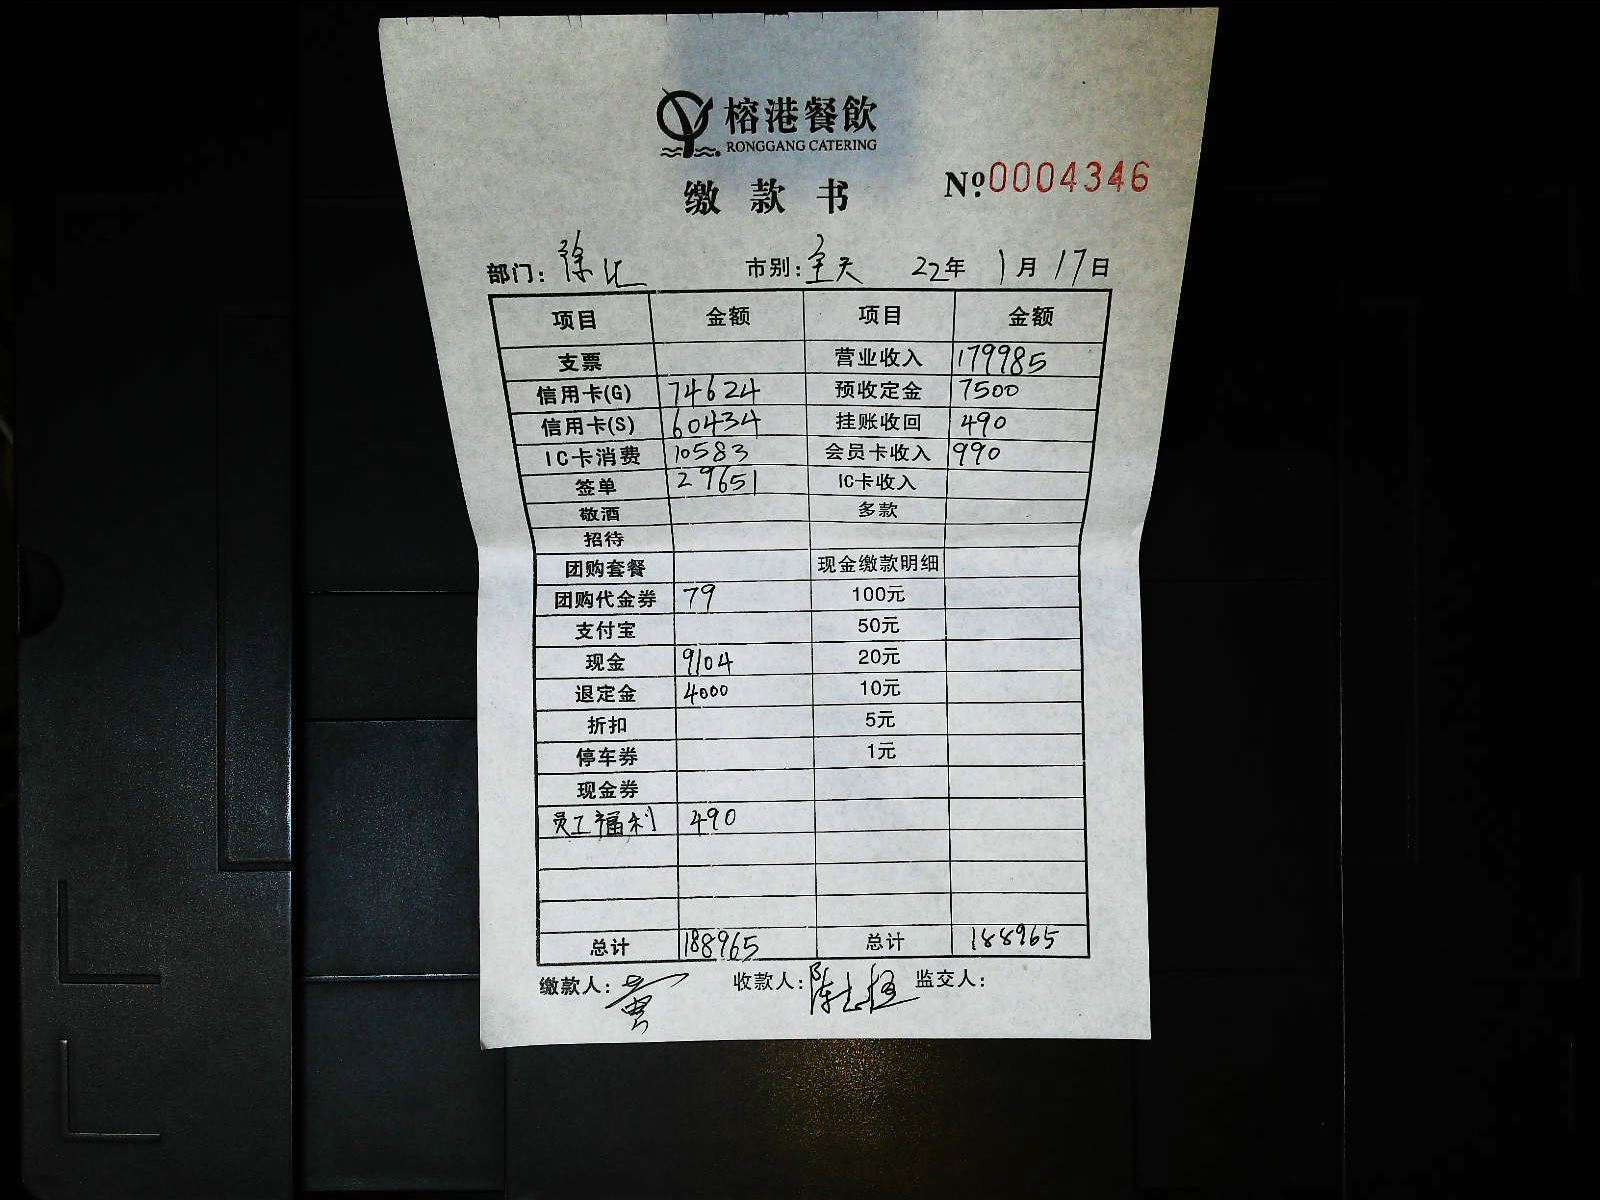 榕港餐飲
RONGGANG CATERING
缴款书 №0004346
部门：徐汇 市别：全天 22年 1月 17日
项目 金额 项目 金额
支票 营业收入 179985
信用卡(G) 74624 预收定金 7500
信用卡(S) 60434 挂账收回 490
IC卡消费 10583 会员卡收入 990
签单 29651 IC卡收入
敬酒 多款
招待
团购套餐 现金缴款明细
团购代金券 79 100元
支付宝 50元
现金 9104 20元
退定金 4000 10元
折扣 5元
停车券 1元
现金券
员工福利 490
总计 188965 总计 188965
缴款人：黄 收款人：陈 监交人：